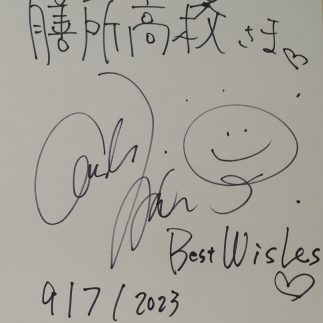 膳所高校さま♡
Best Wishes
♡
9/7/2023